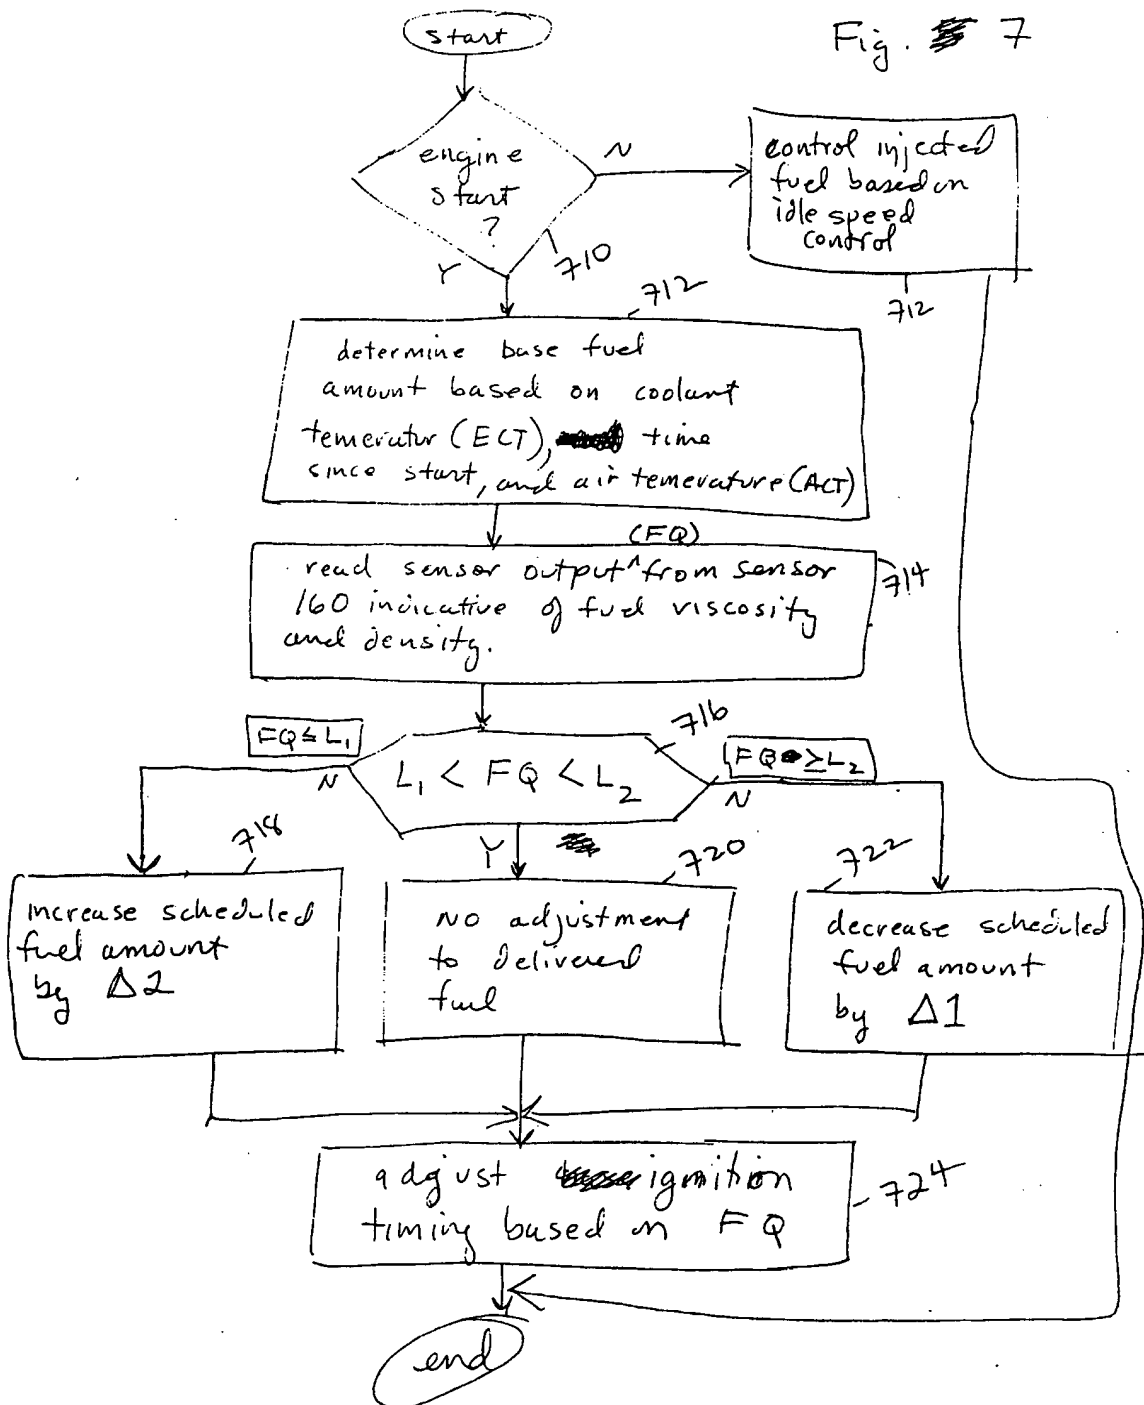 Fig. 7
start
engine
start
?
N
Y
710
control injected
fuel based on
idle speed
control
712
712
determine base fuel
amount based on coolant
temeratur (ECT), time
since start, and air temerature (ACT)
(FQ)
read sensor output ^ from sensor
160 indicative of fuel viscosity
and density.
714
716
FQ ≤ L₁
L₁ < FQ < L₂
FQ ≥ L₂
N
N
Y
718
720
722
increase scheduled
fuel amount
by Δ2
No adjustment
to delivered
fuel
decrease scheduled
fuel amount
by Δ1
adjust ignition
timing based on FQ
724
end